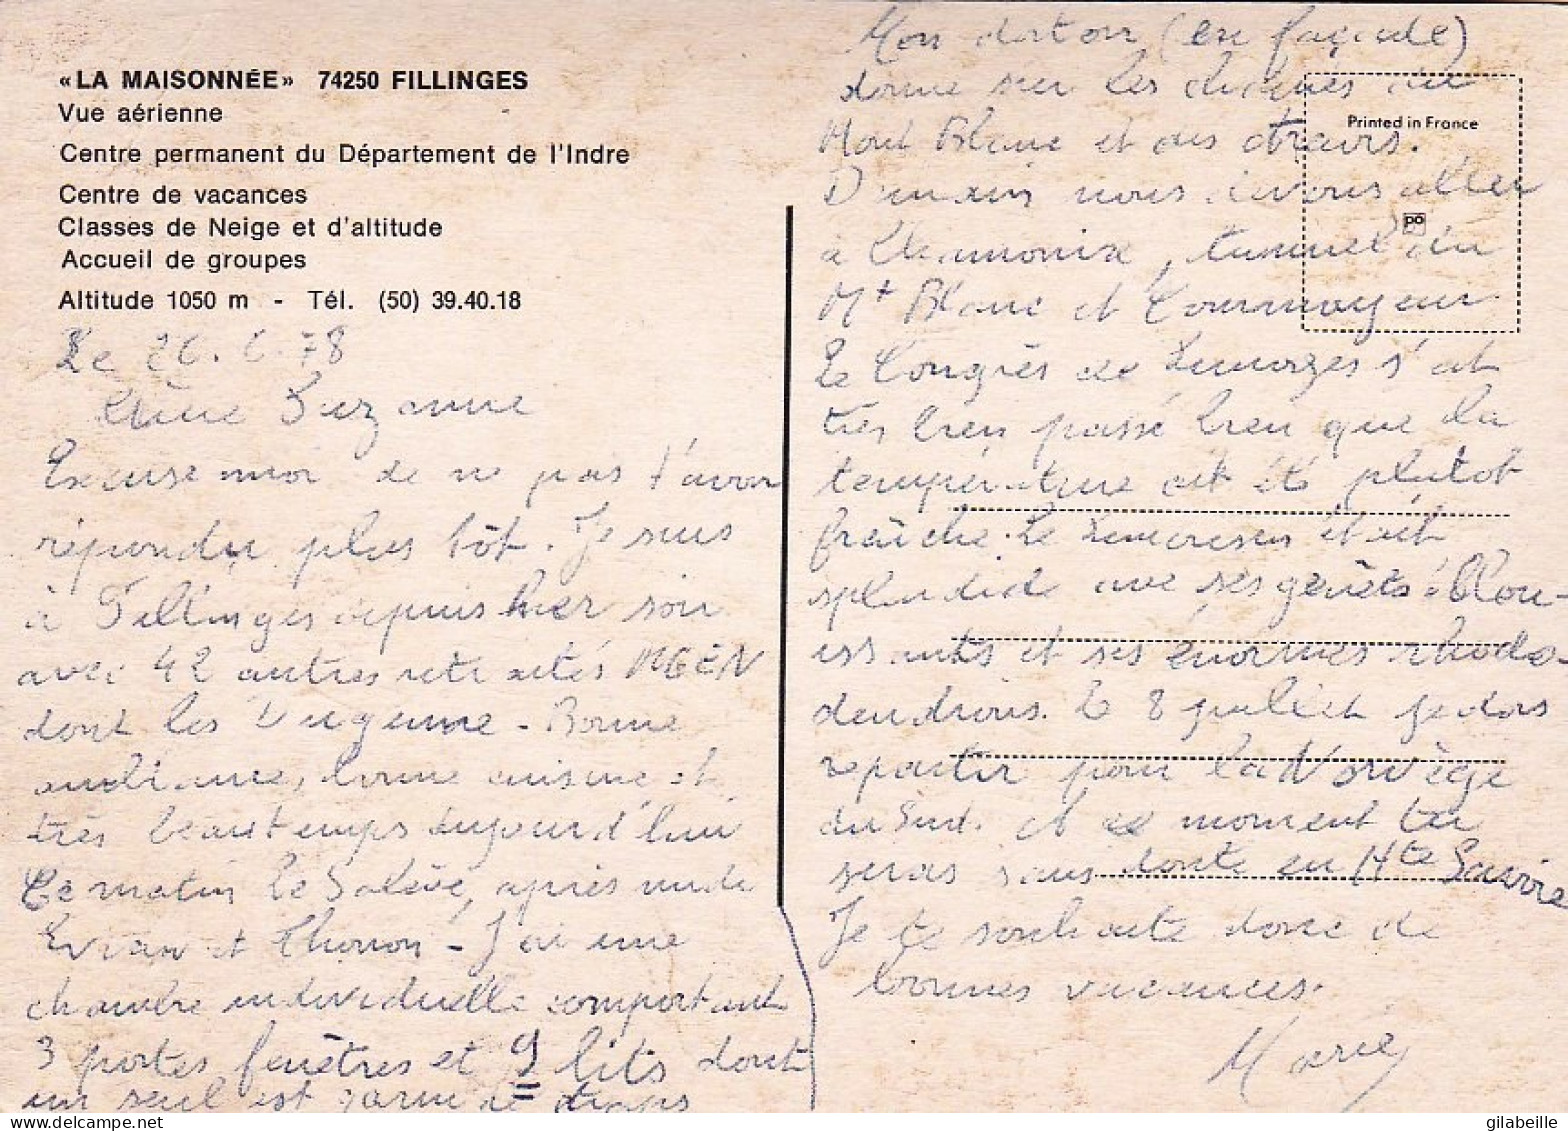 «LA MAISONNÉE» 74250 FILLINGES
Vue aérienne
Centre permanent du Département de l'Indre
Centre de vacances
Classes de Neige et d'altitude
Accueil de groupes
Altitude 1050 m - Tél. (50) 39.40.18
Le 26.6.78
Chère Suzanne
Excuse moi de ne pas t'avoir
répondu plus tôt. Je suis
à Fillinges depuis hier soir
avec 42 autres retraités MGEN
dont les - Bonne
ambiance, bonne cuisine et
très beau temps aujourd'hui
Ce matin le Salève, après midi
Evian et Thonon - J'ai une
chambre individuelle comportant
3 portes fenêtres et 9 lits dont
un seul est garni de draps
Mon dortoir (en façade)
donne sur les du
Mont Blanc et des .
Demain nous devons aller
à Chamonix, tunnel du
Mt Blanc et Courmayeur
Le Congrès de Limoges s'est
très bien passé bien que la
température ait été plutôt
fraîche. Le Limousin était
splendide avec ses genêts éblou-
issants et ses énormes rhodo-
dendrons. Le 8 juillet je dois
repartir pour la Norvège
du Sud. et ce moment tu
seras sans doute en Hte Savoie
Je te souhaite donc de
bonnes vacances.
Marie
Printed in France
po
gilabeille